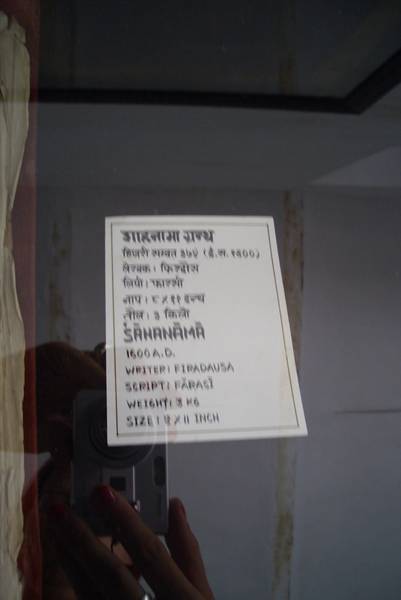 शाहनामा ग्रन्थ
हिजरी सम्वत ३५४ (ई.स. १६००)
लेखक: फिरदौस
लिपी: फारसी
नाप: ८ x ११ इन्च
तौल: ३ किलो
ŚĀHANĀMĀ
1600 A.D.
WRITER: FIRADAUSA
SCRIPT: FĀRASĪ
WEIGHT: 3 KG
SIZE: X 11 INCH